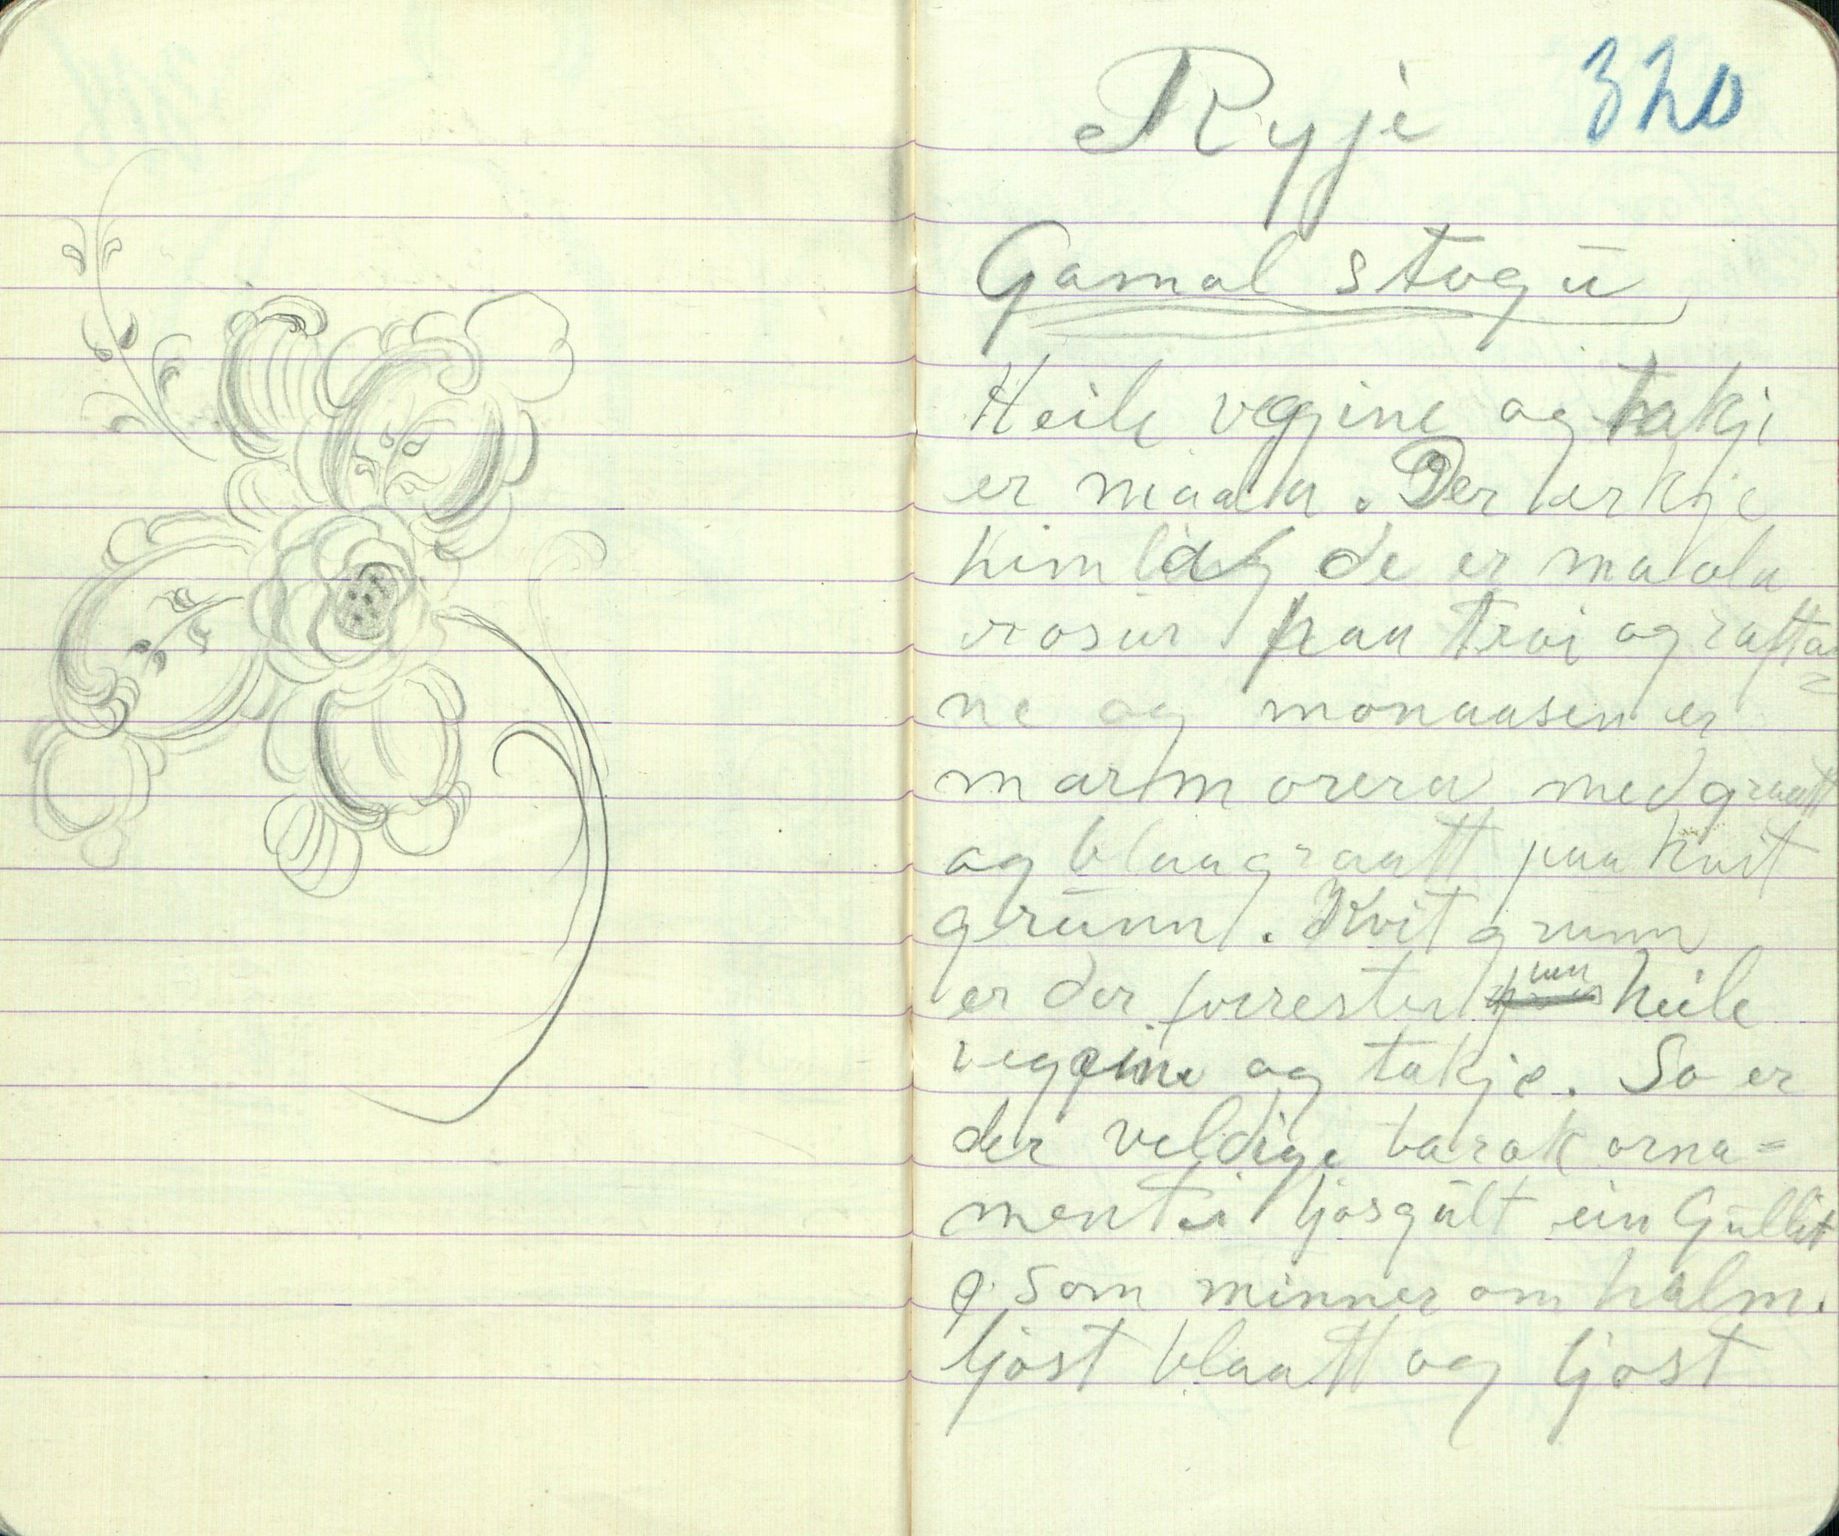 Ryje 320
Gamal stogu
Heile veggine og takje
er maala. Der er kje
himling de er maala
rosur paa troi og rafta=
ne og monaasen er
marmorera med graatt
og blaagraatt paa kvit
grunn. Kvit grunn
er der forresten paa heile
veggine og takje. So er
der veldige barok orna=
ment i ljosgult ein Gullit
som minner om halm.
ljost blaatt og ljost